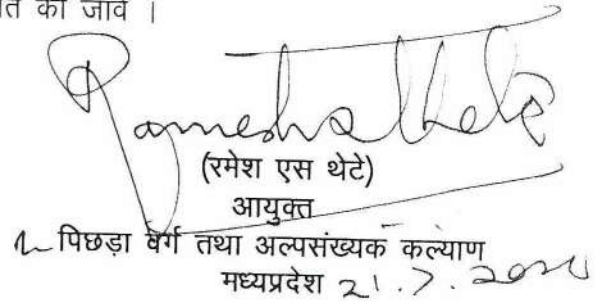 की जावे ।
Ramesh Thete
(रमेश एस थेटे)
आयुक्त
पिछड़ा वर्ग तथा अल्पसंख्यक कल्याण
मध्यप्रदेश 21.7.